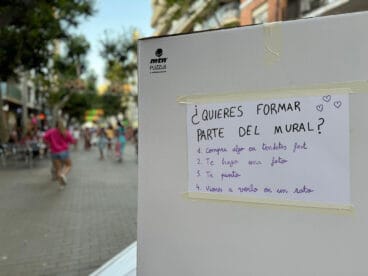 mtn
PUZZLE
¿QUIERES FORMAR
PARTE DEL MURAL?
1. Compra algo en tenderets fest
2. Te hago una foto
3. Te pinto
4. Vienes a verlo en un rato